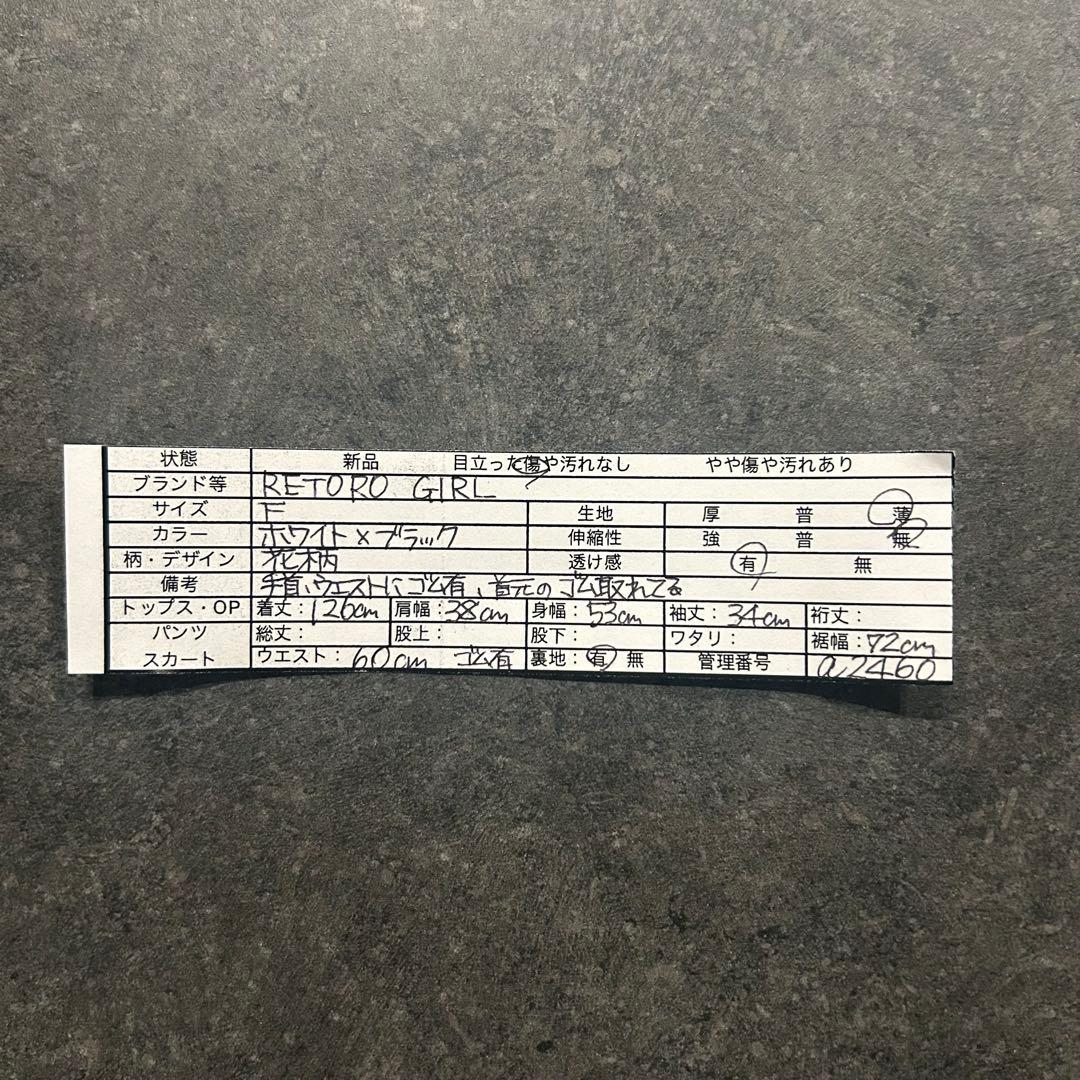 状態 新品 目立った傷や汚れなし やや傷や汚れあり
ブランド等 RETORO GIRL
サイズ F 生地 厚 普 薄
カラー ホワイト×ブラック 伸縮性 強 普 無
柄・デザイン 花柄 透け感 有 無
備考 手首、ウエストにゴム有、首元のゴム取れてる
トップス・OP 着丈：126cm 肩幅：38cm 身幅：53cm 袖丈：34cm 裄丈：
パンツ 総丈： 股上： 股下： ワタリ： 裾幅：72cm
スカート ウエスト：60cm ゴム有 裏地：有 無 管理番号 a2460